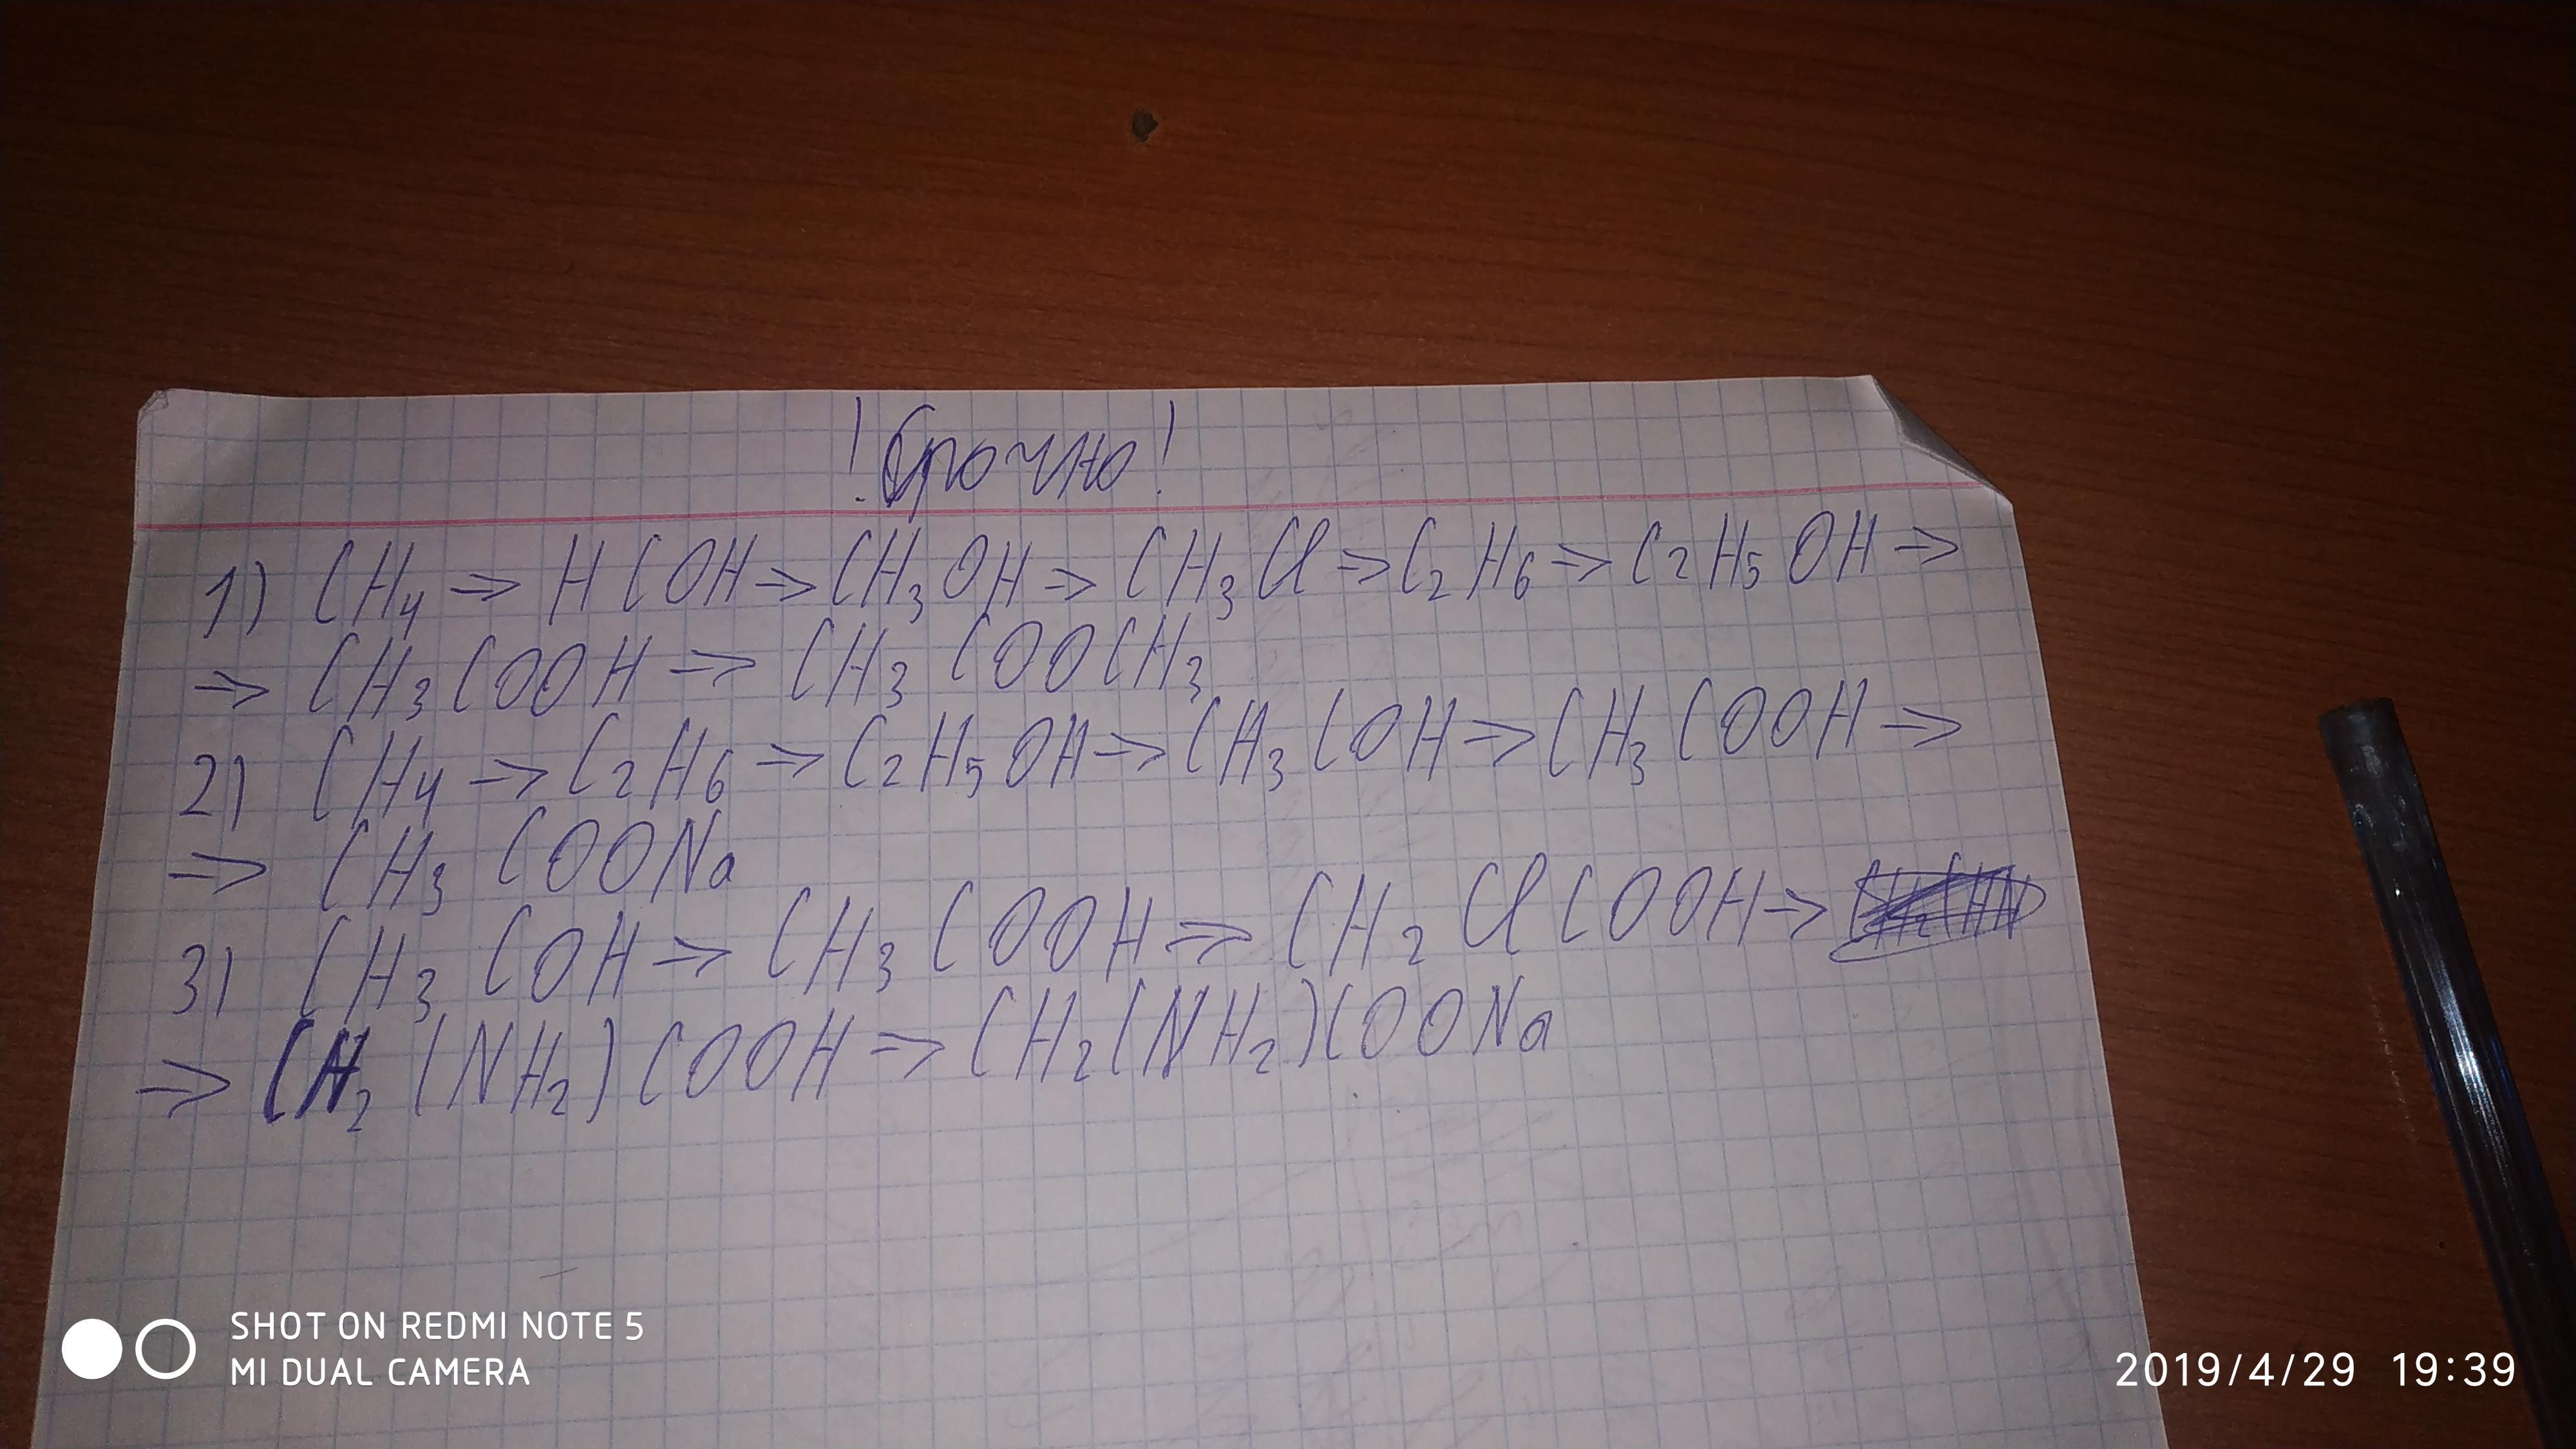 ! Срочно !
1) CH₄ ⇒ HCOH ⇒ CH₃OH ⇒ CH₃Cl ⇒ C₂H₆ ⇒ C₂H₅OH ⇒
⇒ CH₃COOH ⇒ CH₃COOCH₃
2) CH₄ ⇒ C₂H₆ ⇒ C₂H₅OH ⇒ CH₃COH ⇒ CH₃COOH ⇒
⇒ CH₃COONa
3) CH₃COH ⇒ CH₃COOH ⇒ CH₂ClCOOH ⇒
⇒ CH₂(NH₂)COOH ⇒ CH₂(NH₂)COONa
SHOT ON REDMI NOTE 5
MI DUAL CAMERA
2019/4/29 19:39